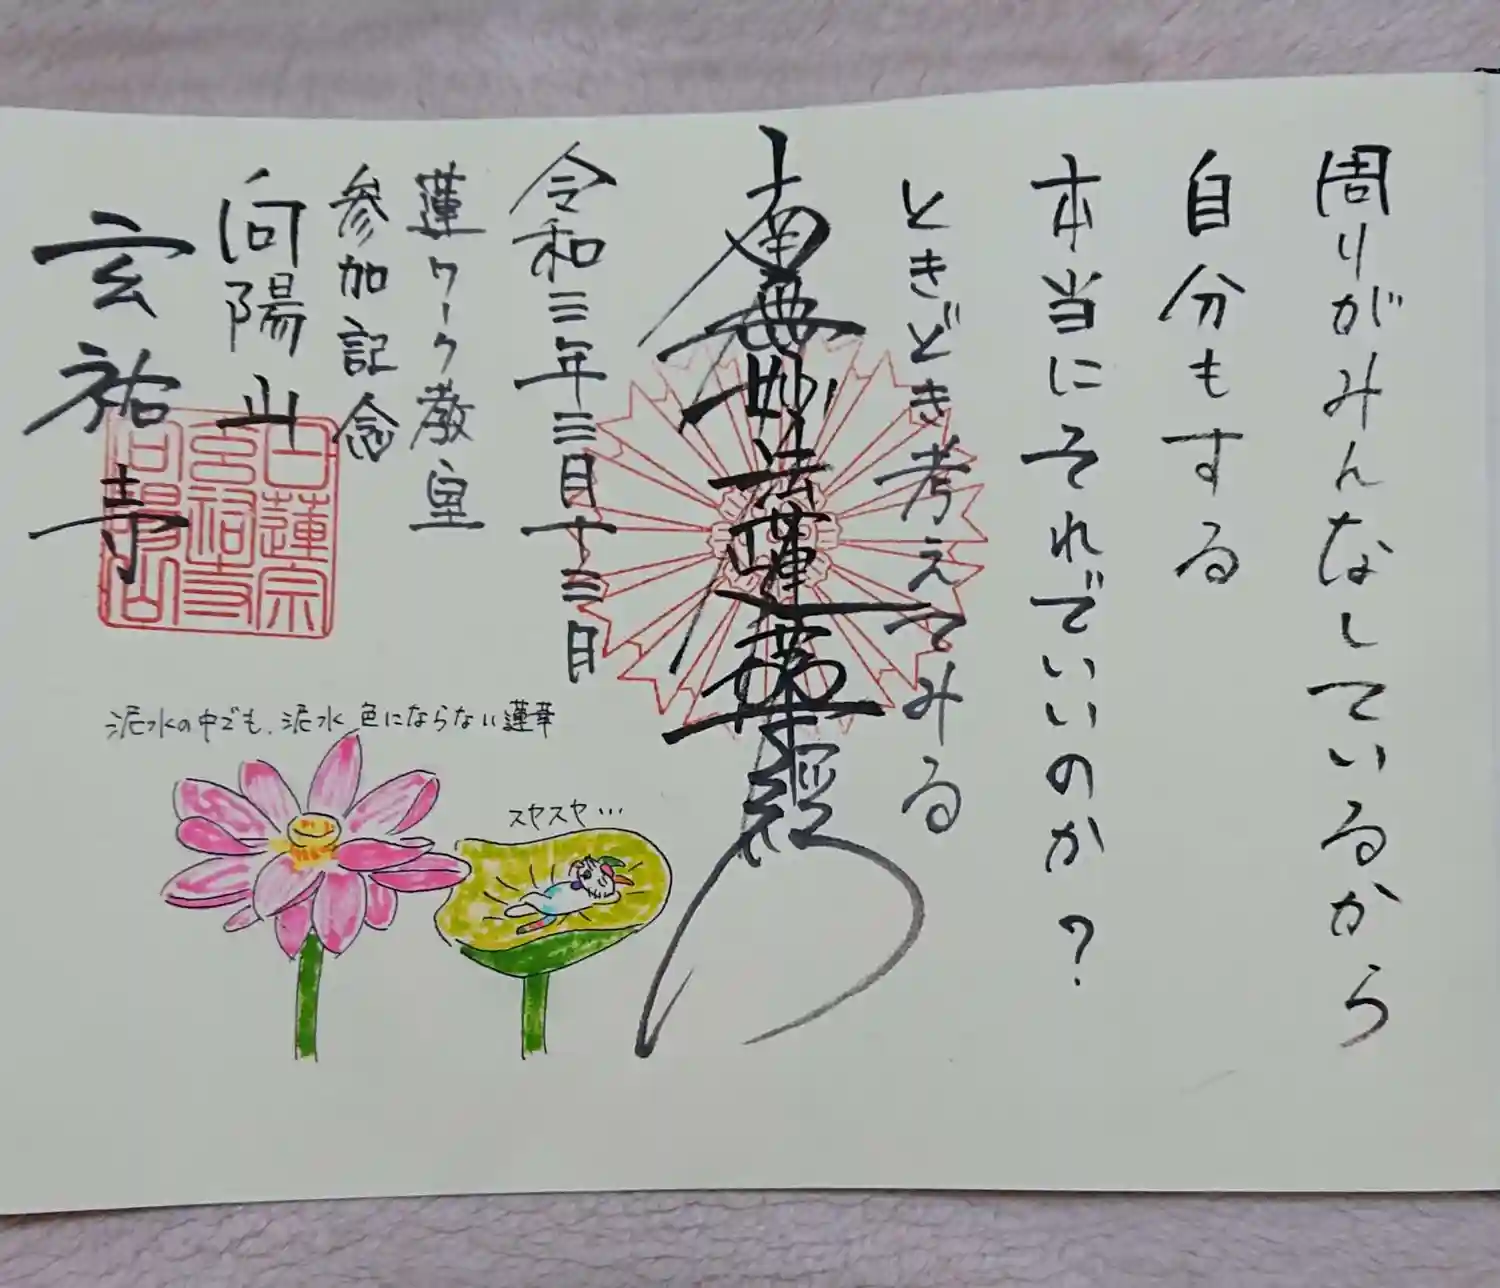 周りがみんなしているから
自分もする
本当にそれでいいのか？
ときどき考えてみる
南無妙法蓮華経
令和三年三月十三日
蓮ワーク教室
参加記念
向陽山
玄祐寺
日蓮宗
玄祐寺
向陽山
泥水の中でも、泥水色にならない蓮華
スヤスヤ…